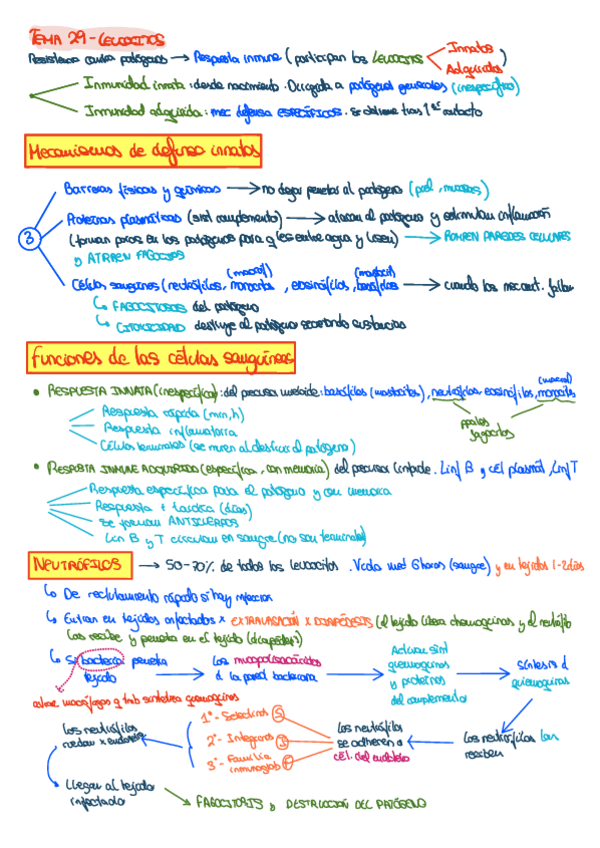 TEMA 29 - LEUCOCITOS
Resistencia contra patógenos → Respuesta inmune (participan los LEUCOCITOS Innatos
Adquiridos )
Inmunidad innata: desde nacimiento. Dirigida a patógenos generales (inespecífico)
Inmunidad adquirida: mec defensa ESPECÍFICOS. Se obtiene tras 1er contacto
Mecanismos de defensa innatos
3
Barreras físicas y químicas → no dejar penetrar al patógeno (piel, mucosas)
Proteínas plasmáticas (sist complemento) → atacan al patógeno y estimulan inflamación
(forman poros en los patógenos para q les entre agua y lisen) → ROMPEN PAREDES CELULARES
y ATRAEN FAGOCITOS
(macróf) (mastocit)
Células sanguíneas (neutrófilos, monocitos, eosinófilos, basófilos → cuando los mecanit. fallan
↳ FAGOCITOSIS del patógeno
↳ CITOTOXICIDAD destruye al patógeno secretando sustancias
Funciones de las células sanguíneas
• RESPUESTA INNATA (inespecífica): del precursor mieloide: basófilos (mastocitos), neutrófilos, eosinófilos, monocitos
(macrof)
Respuesta rápida (min, h)
Respuesta inflamatoria
Células terminales (se mueren al destruir al patógeno)
fagocitos
• RESPUESTA INMUNE ADQUIRIDA (específica, con memoria) del precursor linfoide. Linf B y cél plasmát, Linf T
Respuesta específica para el patógeno y con memoria
Respuesta + tardía (días)
Se forman ANTICUERPOS
Lin B y T circulan en sangre (no son terminales)
NEUTRÓFILOS → 50-70% de todos los leucocitos. Vida med 6 horas (sangre) y en tejidos 1-2 días
↳ De reclutamiento rápido si hay infección
↳ Entran en tejidos infectados x EXTRAVASACIÓN X DIAPÉDESIS (el tejido libera quemoquinas y el neutrófilo
las recibe y penetra en el tejido (diapédesis)
↳ Si bacteria penetra tejido → Los mucopolisacáridos d la pared bacteriana → Activan sist quemoquinas y proteínas del complemento → síntesis d quemoquinas
atrae macrófagos q tmb sintetiza quemoquinas
Los neutrófilos las reciben
Los neutrófilos se adhieren a cél. del endotelio
1º- Selectinas S
2º- Integrinas I
3º- Familia inmunoglob F
Los neutrófilos ruedan x endotelio
Llegan al tejido infectado → FAGOCITOSIS y DESTRUCCIÓN DEL PATÓGENO